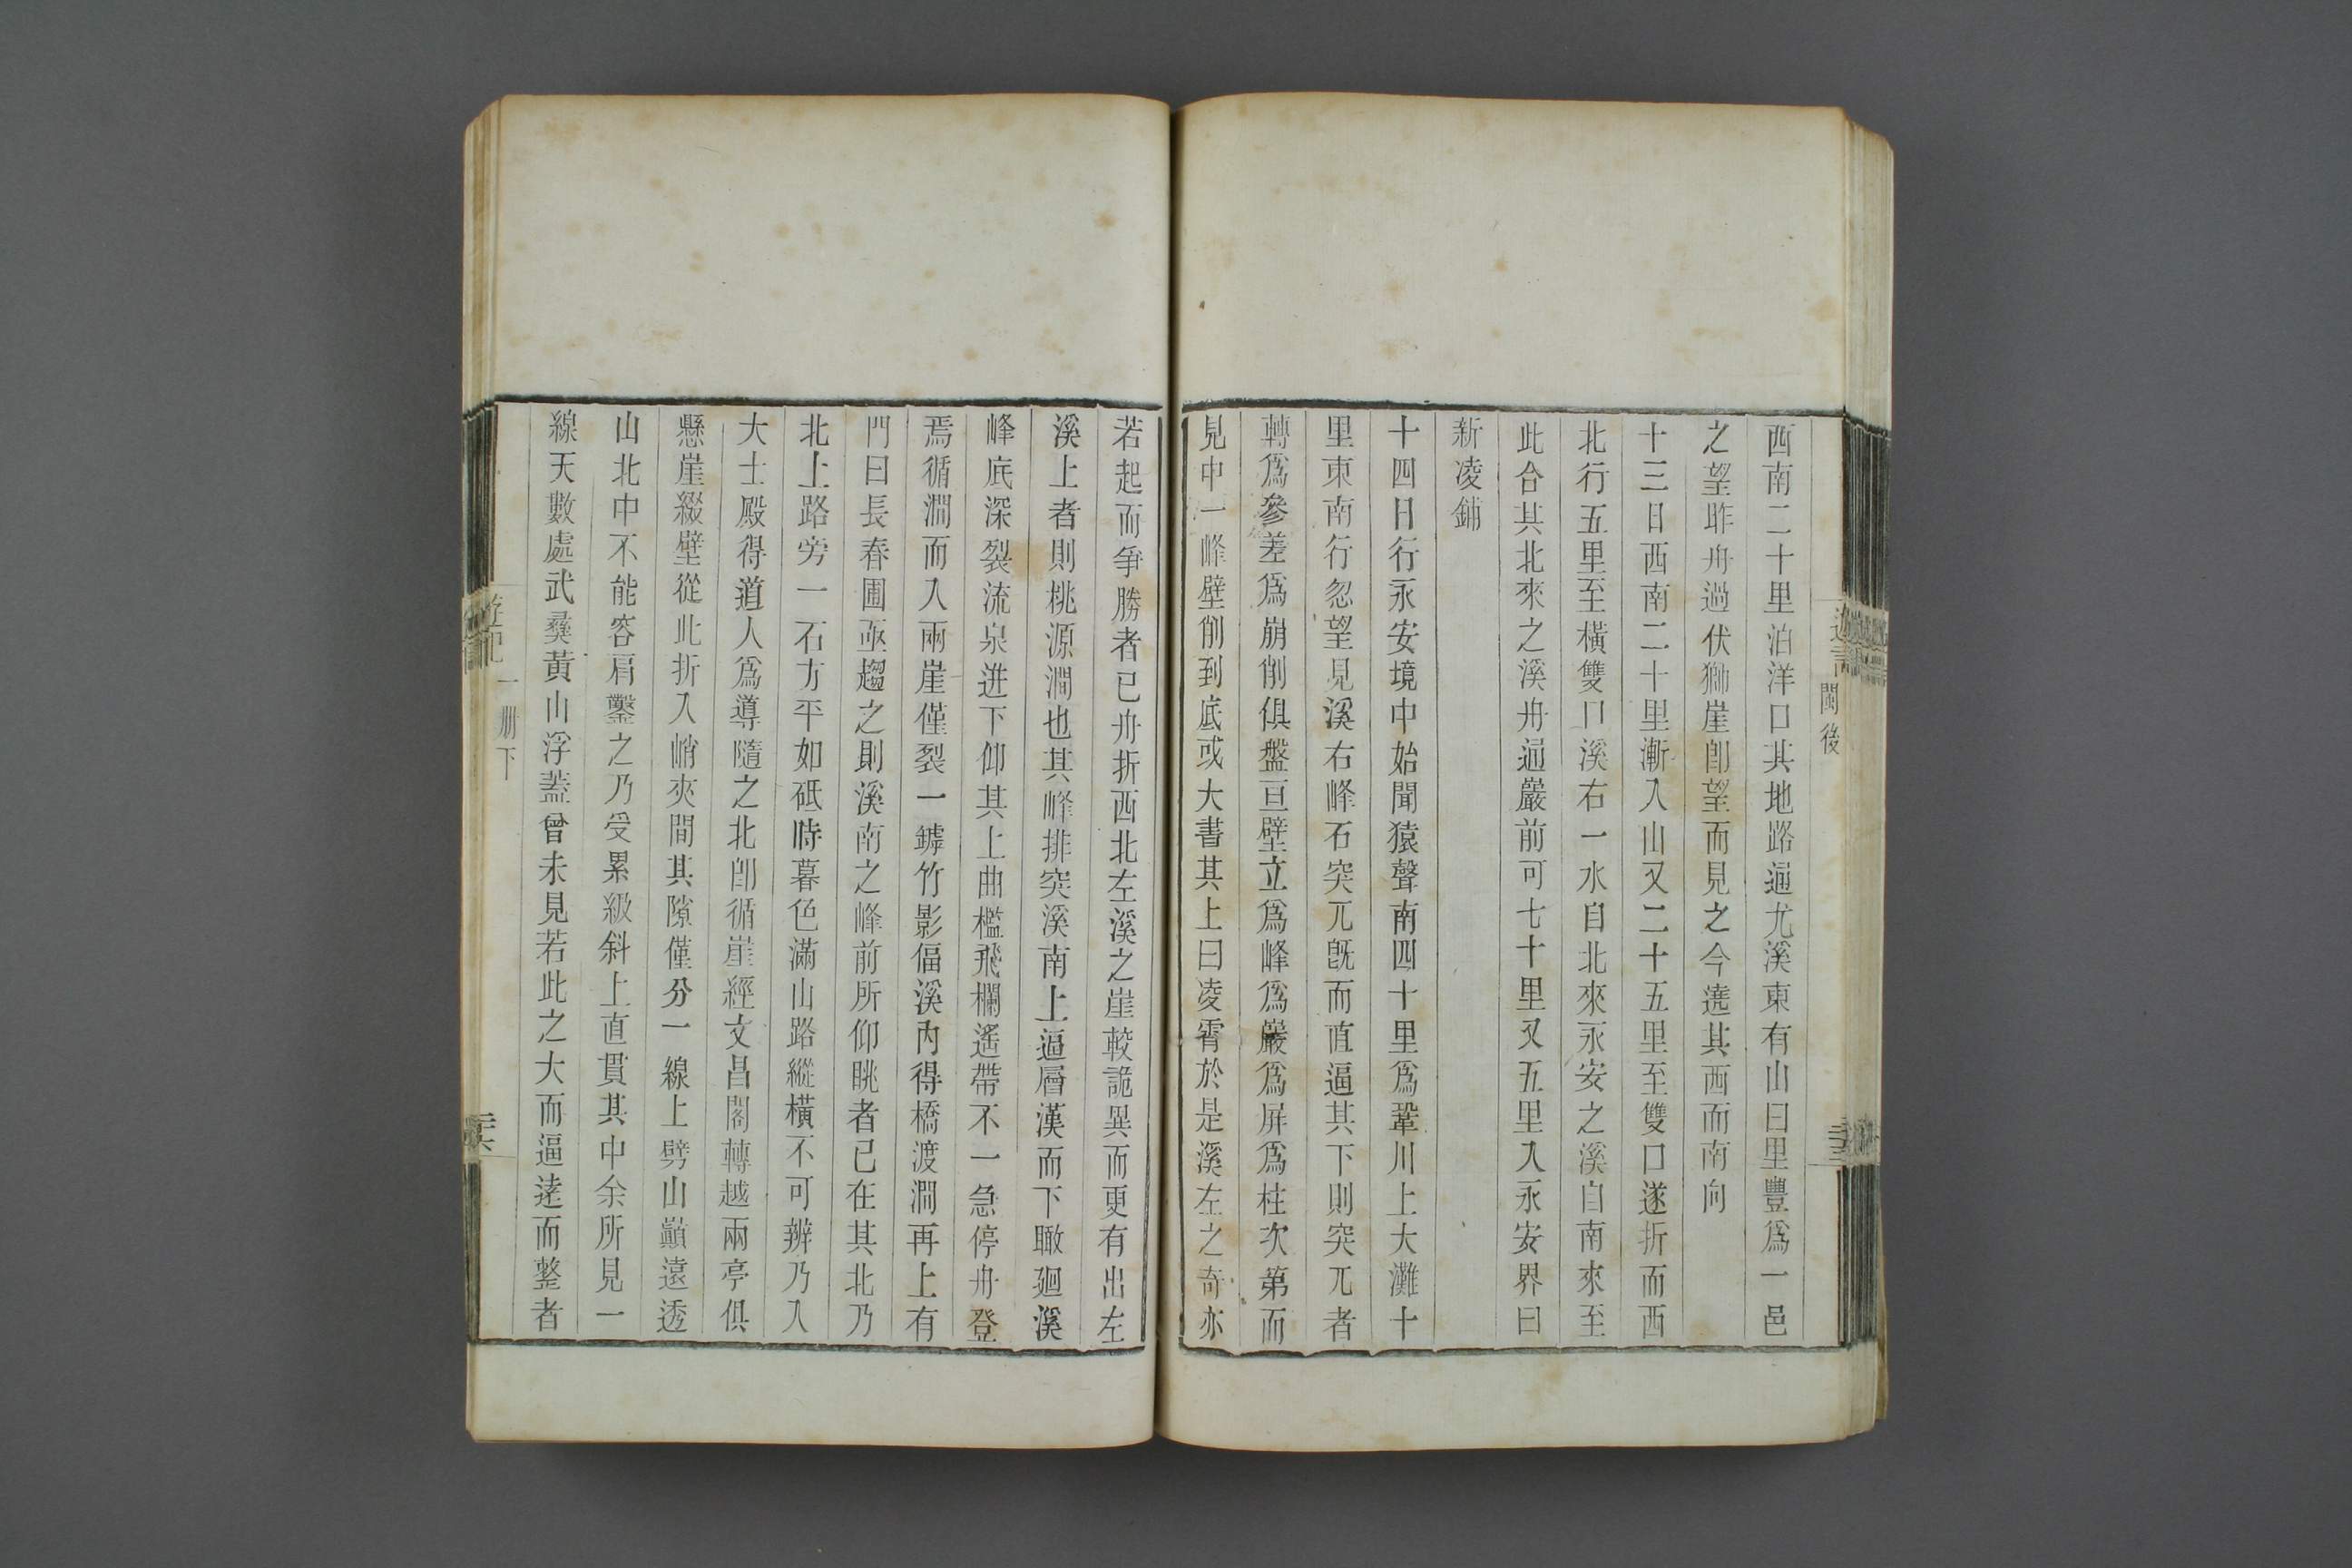 西南二十里泊洋口其地路通尤溪東有山曰里豐爲一邑
之望昨舟過伏獅崖卽望而見之今遶其西而南向
十三日西南二十里漸入山又二十五里至雙口遂折而西
北行五里至橫雙口溪右一水自北來永安之溪自南來至
此合其北來之溪舟通巖前可七十里又五里入永安界曰
新凌鋪
十四日行永安境中始聞猿聲南四十里爲鞏川上大灘十
里東南行忽望見溪右峰石突兀旣而直逼其下則突兀者
轉爲參差爲崩削俱盤亘壁立爲峰爲巖爲屏爲柱次第而
見中一峰壁削到底或大書其上曰凌霄於是溪左之奇亦
若起而爭勝者已舟折西北左溪之崖較詭異而更有出左
溪上者則桃源澗也其峰排突溪南上逼層漢而下瞰廻溪
峰底深裂流泉迸下仰其上曲檻飛欄遙帶不一急停舟登
焉循澗而入兩崖僅裂一罅竹影偪溪內得橋渡澗再上有
門曰長春圃亟趨之則溪南之峰前所仰眺者已在其北乃
北上路旁一石方平如砥時暮色滿山路縱橫不可辨乃入
大士殿得道人爲導隨之北卽循崖經文昌閣轉越兩亭俱
懸崖綴壁從此折入峭夾間其隙僅分一線上劈山巔遠透
山北中不能容肩鑿之乃受累級斜上直貫其中余所見一
線天數處武彛黃山浮蓋曾未見若此之大而逼遠而整者
閩後
遊記
一册下